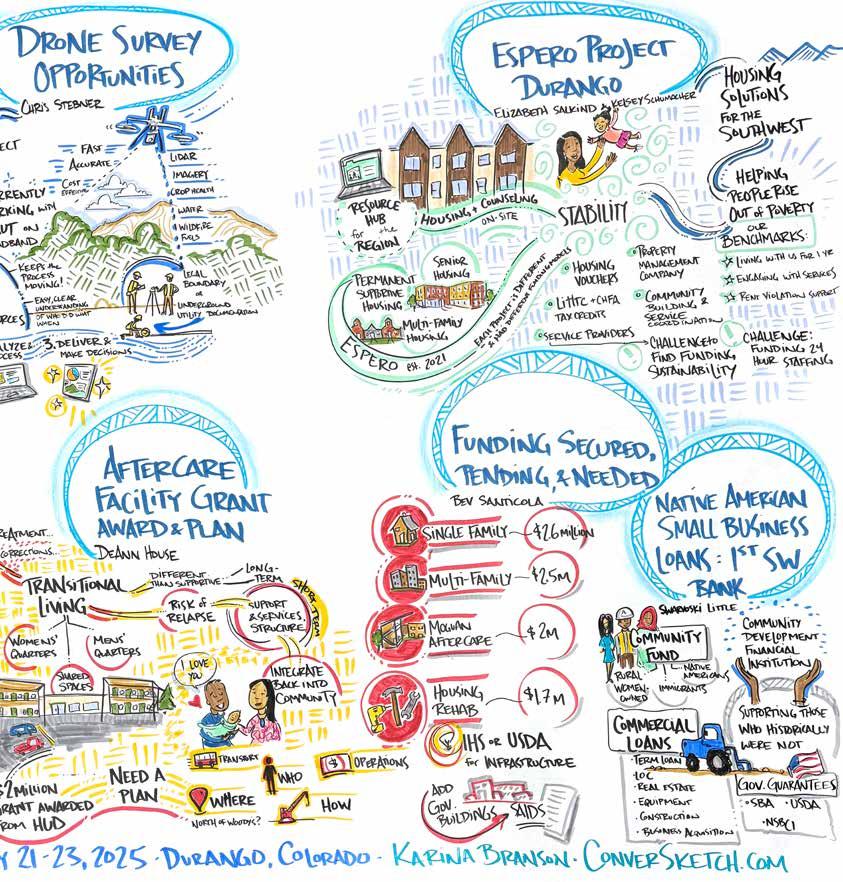 DRONE SURVEY
OPPORTUNITIES
CHRIS STEBNER
FAST
ACCURATE
COST
EFFECTIVE
LIDAR
IMAGERY
CROP HEALTH
WATER
WILDFIRE
FUELS
KEEPS THE
PROCESS
MOVING!
EASY, CLEAR
UNDERSTANDING
OF WHO DID WHAT
WHEN
LEGAL
BOUNDARY
OR
UNDERGROUND
UTILITY DOCUMENTATION
3. DELIVER &
MAKE DECISIONS
ESPERO PROJECT
DURANGO
ELIZABETH SALKIND & KELSEY SCHUMACHER
HOUSING
SOLUTIONS
FOR THE
SOUTHWEST
HELPING
PEOPLE RISE
OUT OF POVERTY
OUR
BENCHMARKS:
LIVING WITH US FOR 1 YR
ENGAGING WITH SERVICES
RENT VIOLATION SUPPORT
RESOURCE
HUB
FOR THE
REGION
HOUSING + COUNSELING
ON-SITE
STABILITY
PERMANENT
SUPPORTIVE
HOUSING
SENIOR
HOUSING
MULTI-FAMILY
HOUSING
ESPERO EST. 2021
EACH PROJECT IS DIFFERENT
& HAD DIFFERENT FUNDING MODELS
HOUSING
VOUCHERS
LIHTC + CHFA
TAX CREDITS
SERVICE PROVIDERS
PROPERTY
MANAGEMENT
COMPANY
COMMUNITY
BUILDING &
SERVICE
COORDINATION
CHALLENGE TO
FIND FUNDING
SUSTAINABILITY
CHALLENGE:
FUNDING 24
HOUR STAFFING
AFTERCARE
FACILITY GRANT
AWARD & PLAN
DEANN HOUSE
TRANSITIONAL
LIVING
DIFFERENT
THAN SUPPORTIVE
LONG-
TERM
SHORT TERM
RISK OF
RELAPSE
SUPPORT
& SERVICES,
STRUCTURE
WOMENS'
QUARTERS
MENS'
QUARTERS
SHARED
SPACES
I LOVE
YOU
INTEGRATE
BACK INTO
COMMUNITY
$2 MILLION
GRANT AWARDED
FROM HUD
NEED A
PLAN
TRANSPORT
WHO
OPERATIONS
WHERE
NORTH OF WOODY'S?
HOW
FUNDING SECURED,
PENDING, & NEEDED
BEV SANTICOLA
SINGLE FAMILY
$2.6 MILLION
MULTI-FAMILY
$2.5M
MOGUAN
AFTERCARE
$2M
HOUSING
REHAB
$1.7M
IHS OR USDA
FOR INFRASTRUCTURE
ADD
GOV.
BUILDINGS
SAIDS
NATIVE AMERICAN
SMALL BUSINESS
LOANS: 1ST SW
BANK
LITTLE
COMMUNITY
FUND
RURAL
WOMEN-
OWNED
NATIVE
AMERICANS
IMMIGRANTS
COMMUNITY
DEVELOPMENT
FINANCIAL
INSTITUTION
SUPPORTING THOSE
WHO HISTORICALLY
WERE NOT
COMMERCIAL
LOANS
TERM LOAN
LOC
REAL ESTATE
EQUIPMENT
CONSTRUCTION
BUSINESS ACQUISITION
GOV. GUARANTEES
SBA · USDA
21-23, 2025 · DURANGO, COLORADO · KARINA BRANSON · CONVERSKETCH.COM